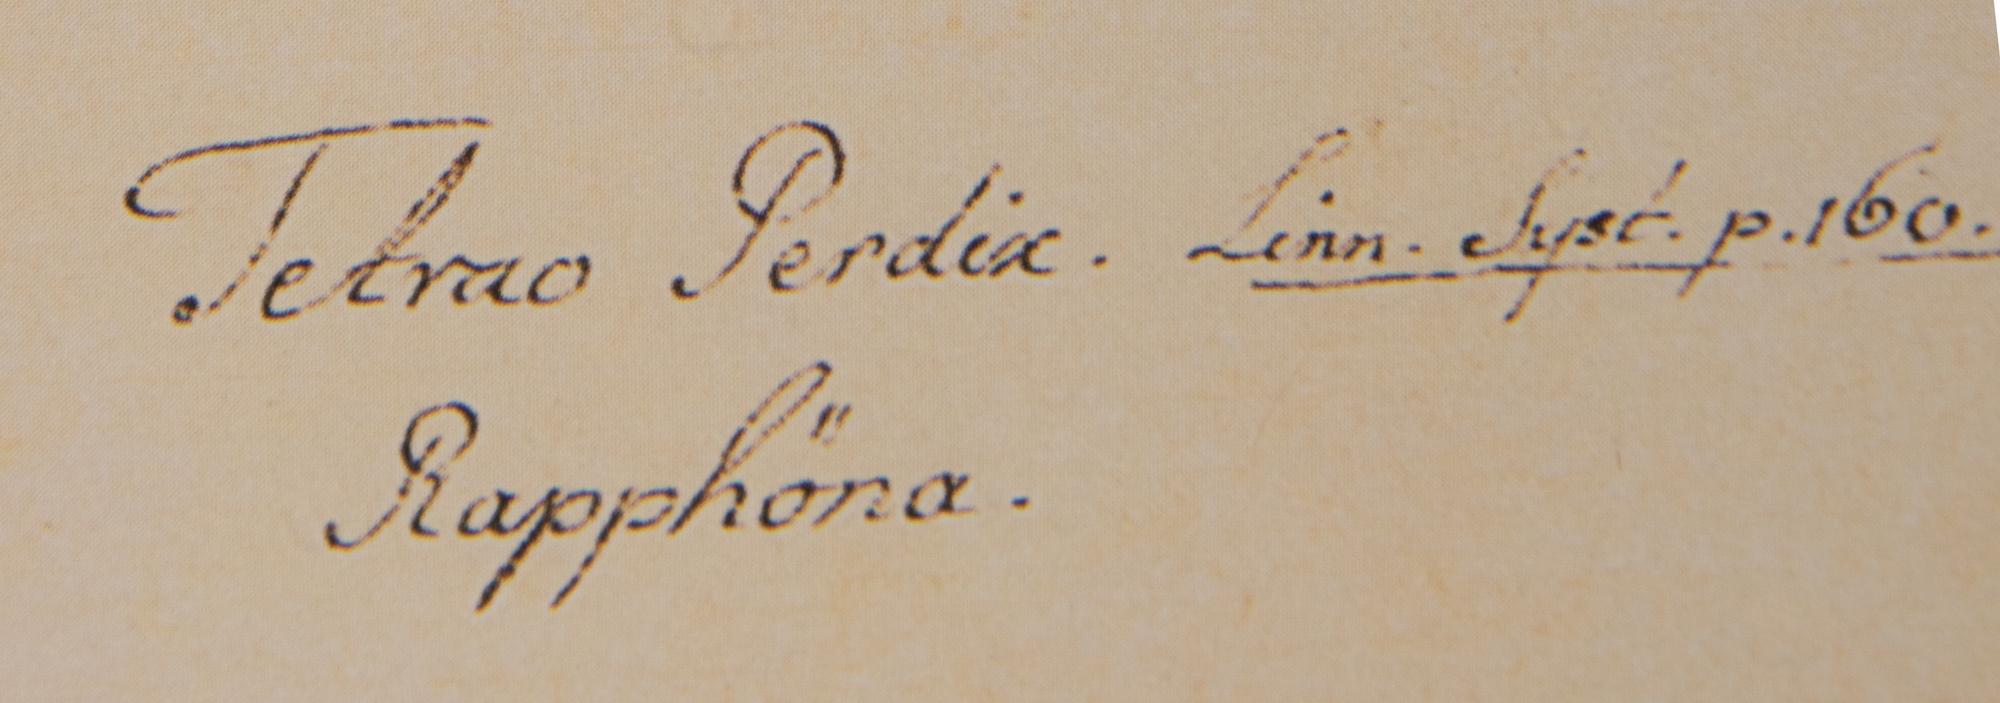 Tetrao Perdix. Linn. Syst. p. 160.
Rapphöna.